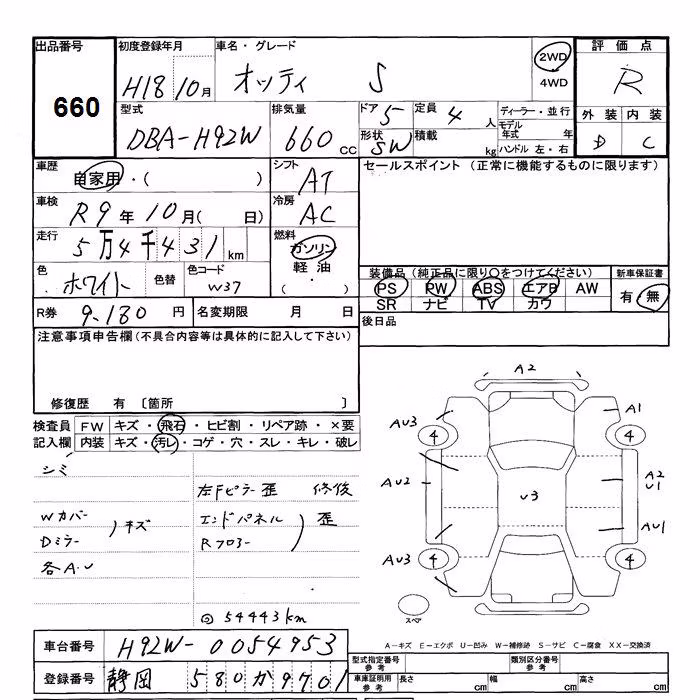 出品番号 初度登録年月 車名・グレード 2WD 評価点
660 H18 10月 オッティ S 4WD R
型式 排気量 ドア 5 定員 4人 ディーラー・並行 外装 内装
DBA-H92W 660cc 形状 SW 積載 kg モデル年式 年 ハンドル 左・右 D C
車歴 自家用・( ) シフト AT セールスポイント (正常に機能するものに限ります)
車検 R9年10月( 日) 冷房 AC
走行 5万4千431km 燃料 ガソリン
色 ホワイト 色替 色コード W37 軽油 ( ・ )
装備品(純正品に限り○をつけてください) 新車保証書
PS PW ABS エアB AW 有・無
SR ナビ TV カワ
R券 9.180円 名変期限 月 日 後日品
注意事項申告欄(不具合内容等は具体的に記入して下さい)
修復歴 有 〔箇所 〕
検査員 FW キズ・飛石・ヒビ割・リペア跡・×要
記入欄 内装 キズ・汚レ・コゲ・穴・スレ・キレ・破レ
シミ
左Fピラー歪 修後
Wカバー
Dミラー )キズ
エンドパネル
Rフロアー )歪
各A.U
54443km
A2
AU3 4 4 A1
AU2 U3 A2
U1
AU1
AU3 4 4
スペア
A-キズ E-エクボ U-凹み W-補修跡 S-サビ C-腐食 XX-交換済
車台番号 H92W-0054953
型式指定番号 参考 類別区分番号 参考
登録番号 静岡 580 か 9701
車庫証明用 参考 長さ cm 幅 cm 高さ cm